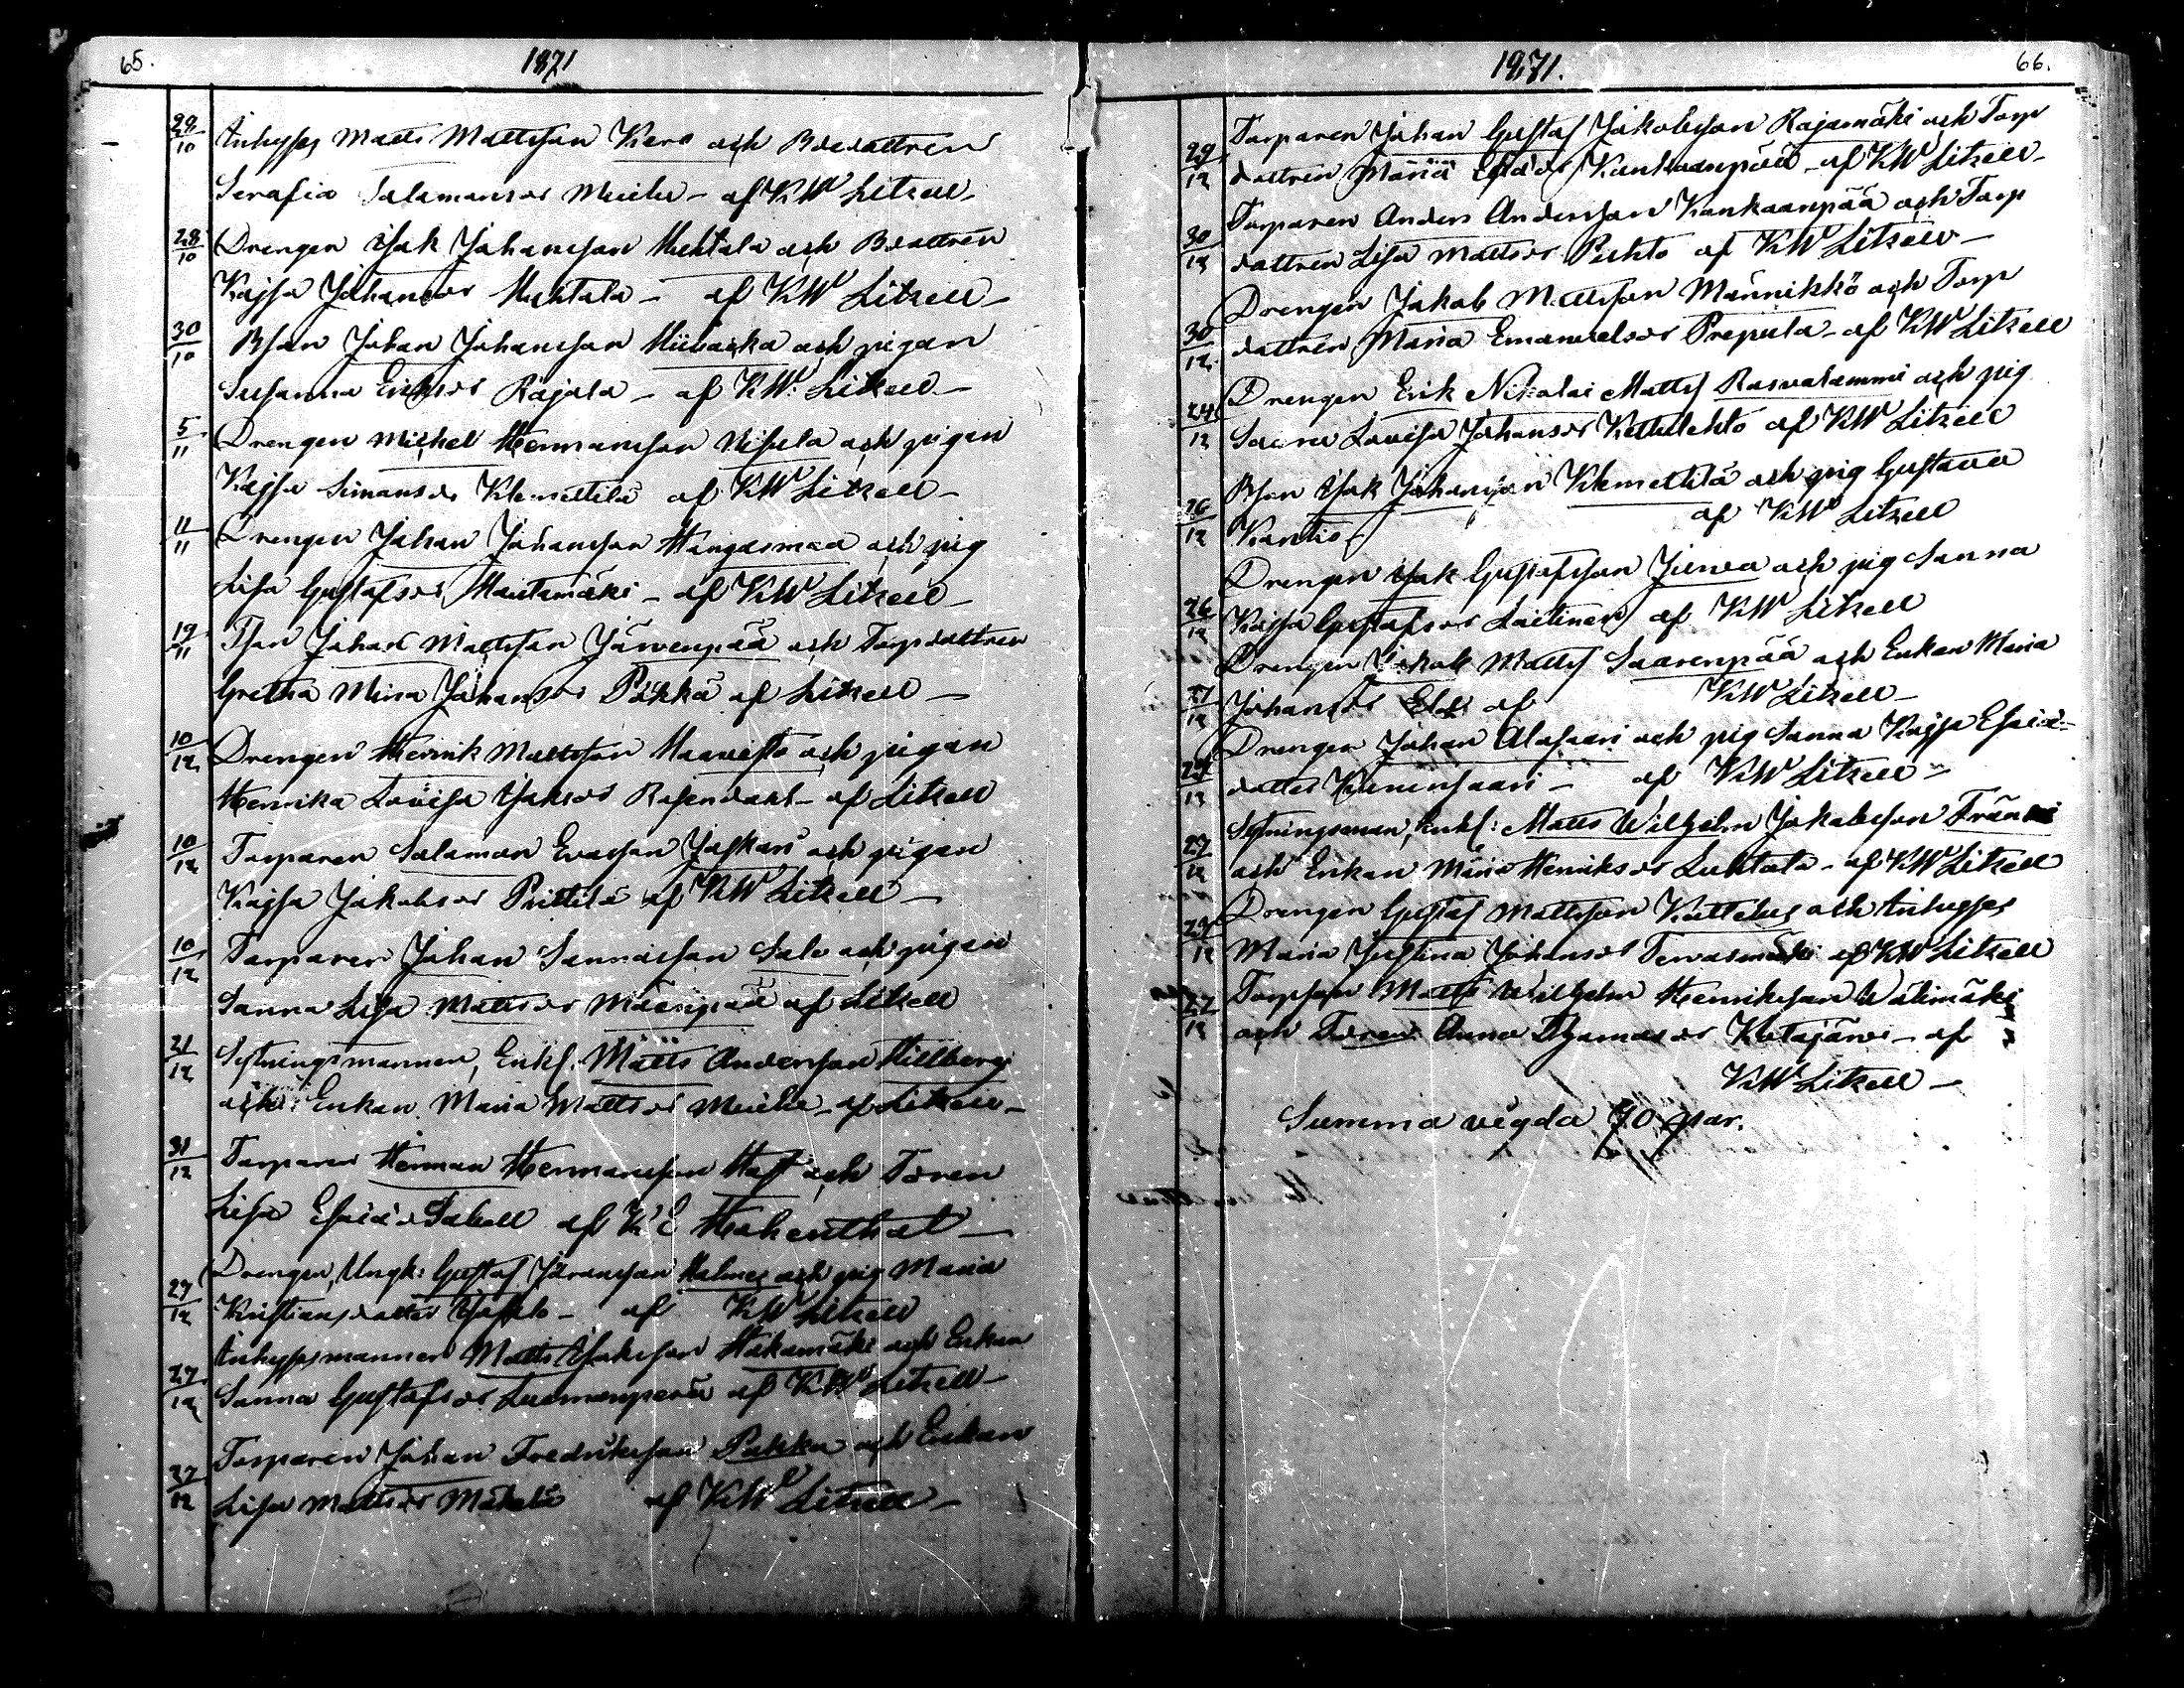 65.
1871
29/10 Inhyses Matts Mattsson Kero och Bdedattren
Serafia Salamonsdr – af KW Litzell –
28/10 Drengen Isak Johansson Huhtala och Bdattren
Kajsa Johansdr Huhtala – af KW Litzell –
30/10 Bson Johan Johansson och pigan
Susanna Eriksdr Rajala – af KW Litzell –
5/11 Drengen Michel Hermansson och pigan
Kajsa Simonsdr Klemettilä af KW Litzell –
11/11 Drengen Johan Johansson Hangasmaa och pig
Lisa Gustafsdr Hautamäki – af KW Litzell –
19/11 Tson Johan Mattsson Järvenpää och Torpdattren
Gretha Mina Johansdr Pökkä af Litzell –
10/12 Drengen Henrik Mattsson Haavisto och pigan
Henrika Lovisa Isaksdr Rosendahl – af Litzell
10/12 Torparen Salamon Evasson Jaskari och pigan
Kajsa Jakobsdr Pirttilä af KW Litzell –
10/12 Torparen Johan Sannasson Salo och pigan
Sanna Lisa Mattsdr Mäenpää af Litzell
21/12 Sytningsmannen, Enkl. Matts Andersson Hillberg
och Enkan Maria Mattsdr – af Litzell –
31/12 Torparen Herman Hermansson och Toren
Lisa Esaiedr Sabell af K E Hohenthal –
27/12 Drengen, Ungk: Gustaf Göransson Holmes och pig Maria
Kristiansdatter – af KW Litzell
27/12 Inhysesmannen Matts Isaksson Hakamäki och Enkan
Sanna Gustafsdr Luomanperä af KW Litzell –
27/12 Torparen Johan Fredriksson Pukka och Enkan
Lisa Mattsdr Mäkelä af KW Litzell –
1871.
66.
29/12 Torparen Johan Gustaf Jakobsson Rajamäki och Torp
dattren Maria Esaiedr Kankaanpää – af KW Litzell –
30/12 Torparen Anders Andersson Kankaanpää och Torp
dattren Lisa Mattsdr Puhto af KW Litzell –
30/12 Drengen Jakob Mattsson Männikkö och Torp
dattren Maria Emanuelsdr Prepula – af KW Litzell
24/12 Drengen Erik Nikolai Matts Rasvalammi och pig
Lovisa Johansdr Kettulehto af KW Litzell
26/12 Bson Isak Johansson Klemettilä och pig Gustava
Kantio af KW Litzell
26/12 Drengen Isak Gustafsson Jurva och pig Sanna
Kajsa Gustafsdr Laitinen af KW Litzell
27/12 Drengen Jakob Matts Saarenpää och Enkan Maria
Johansdr af KW Litzell –
27/12 Drengen Johan Alasaari och pig Sanna Kajsa Esaia-
datter – af KW Litzell –
27/12 Sytningsman, Enkl: Matts Wilhelm Jakobsson
och Enkan Maria Henriksdr Luhtala – af KW Litzell
29/12 Drengen Gustaf Mattsson och Inhyses
Maria Justina Johansdr Tervasmäki af KW Litzell
27/12 Torpson Matts Wilhelm Henriksson Välimäki
och Toren Anna Thomasdr Katajärvi – af
KW Litzell –
Summa vigda 70 par.